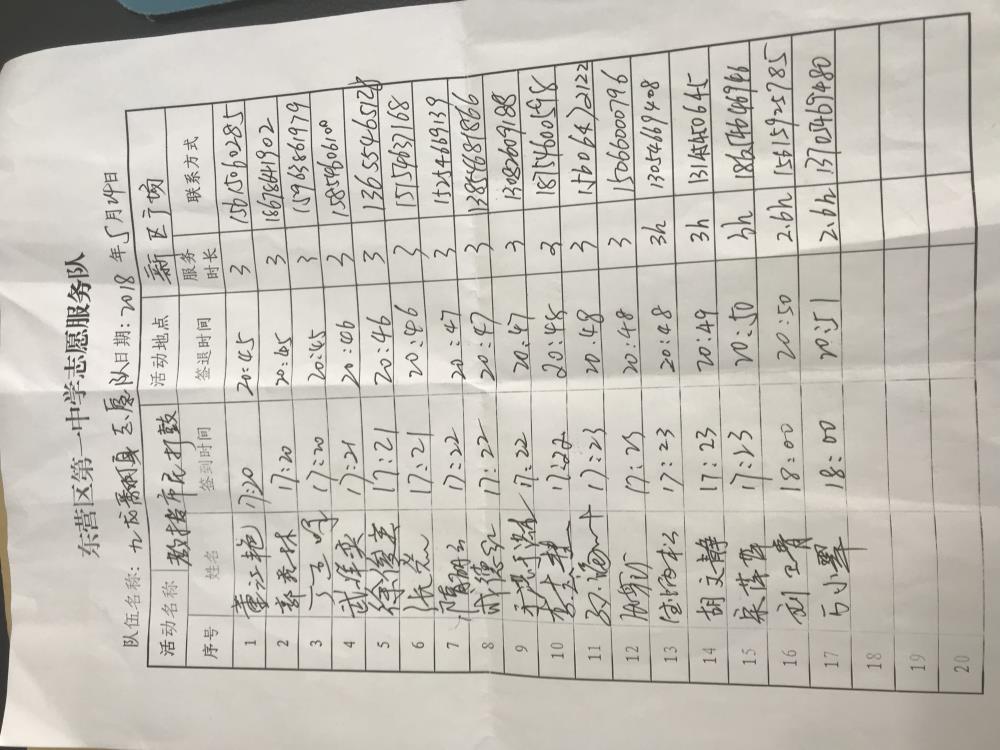 东营区第一中学志愿服务队
队伍名称：九龙翻身志愿队 日期：2018年5月29日
活动名称 教授市民打鼓 活动地点 新区广场
序号 姓名 签到时间 签退时间 服务时长 联系方式
1 董江艳 17:20 20:45 3 15615060285
2 17:20 20:45 3 18678641902
3 17:20 20:45 3 15963861979
4 武佳奕 17:21 20:46 3
5 徐俊美 17:21 20:46 3 13655465128
6 17:21 20:46 3 15154631168
7 隋丽 17:22 20:47 3 15254669139
8 17:22 20:47 3 13854681866
9 17:22 20:47 3
10 17:22 20:48 3 18754600598
11 17:23 20:48 3 15606422122
12 17:23 20:48 3 15066000796
13 17:23 20:48 3h 13054669408
14 胡文静 17:23 20:49 3h 13145450645
15 宋萍萍 17:23 20:50 3h 18654646946
16 刘卫青 18:00 20:50 2.6h 15615925785
17 18:00 20:51 2.6h 13705469480
18
19
20